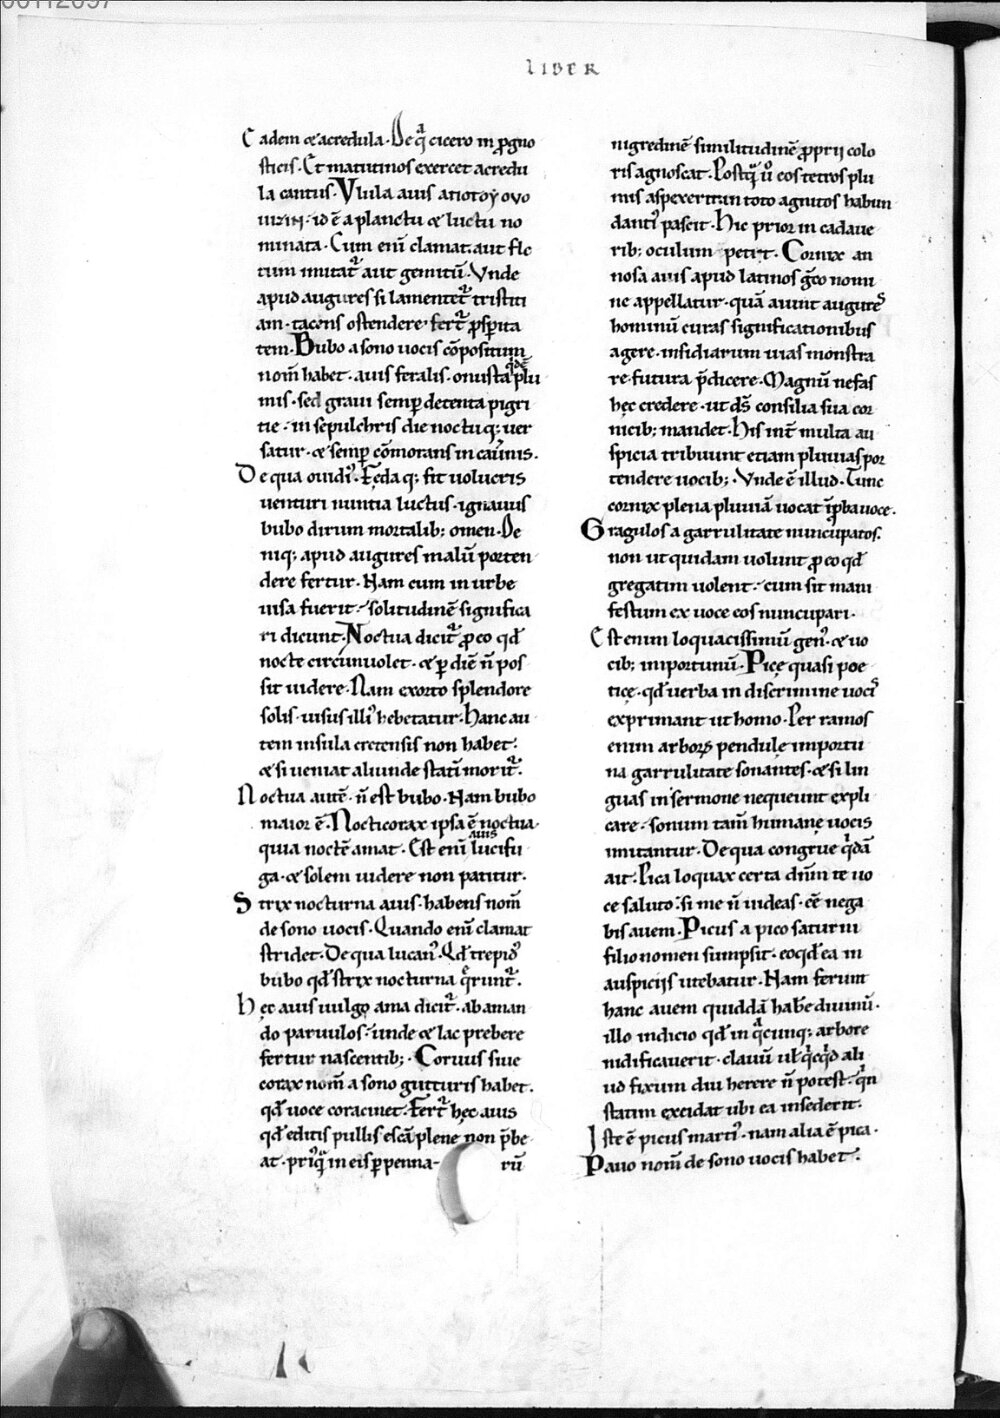 00112097
LIBER
Eadem & acredula. De q̅ cicero in p̱gno
sticis. Et matutinos exercet acredu
la cantus. Vlula auis ΑΠΟΤΟΥ ΟΛΟ
id ē a planctu & luctu no
minata. Cum eni̅ clamat. aut fle
tum imitat᷑ aut gemitu̅. Vnde
apud augures si lamentet᷑ tristiti
am. tacens ostendere fert᷑ ꝓsꝑita
tem. Bubo a sono uocis co̅positum
nom̅ habet. auis feralis. onusta qͥdē plu
mis. sed graui semꝑ detenta pigri
tie. in sepulchris die noctuq; uer
satur. & semꝑ co̅morans in cau̅nis.
De qua ouidiꝰ. Fędaq; fit uolucris
uenturi nuntia luctus. ignauus
bubo dirum mortalib; omen. De
niq; apud augures malu̅ porten
dere fertur. Nam cum in urbe
uisa fuerit. solitudine̅ significa
ri dicunt. Noctua dicit᷑ ꝓ eo qd̅
nocte circu̅nuolet. & ꝑ die̅ n̅ pos
sit uidere. Nam exorto splendore
solis. uisus illiꝰ hebetatur. Hanc au
tem insula cretensis non habet.
& si ueniat aliunde stati̅ morit᷑.
Noctua aute̅. n̅ est bubo. Nam bubo
maior ē. Nocticorax ipsa ē noctua.
quia nocte̅ amat. Est eni̅ auis lucifu
ga. & solem uidere non patitur.
Strix nocturna auis. habens nom̅
de sono uocis. Quando eni̅ clamat
stridet. De qua lucanꝰ. Qd̅ trepidꝰ
bubo qd̅ strix nocturna q̅runt᷑.
Hęc auis uulgo ama dicit᷑. ab aman
do paruulos. unde & lac prebere
fertur nascentib;. Coruus siue
corax nom̅ a sono gutturis habet.
qd̅ uoce coracinet. Fert᷑ hęc auis
qd̅ editis pullis esca̅ plene non p̅be
at. priꝰq̅ in eis ꝑ penna-rū
nigredine̅ similitudine̅ ꝓprij colo
ris agnoscat. Postq̅ ůo eos tetros plu
mis aspexerit in toto agnitos habun
dantiꝰ pascit. Hic prior in cadaue
rib; oculum petit. Cornix an
nosa auis apud latinos g̅co nomi
ne appellatur. qua̅ aiunt augures
hominu̅ curas significationibus
agere. insidiarum uias monstra
re. futura p̅dicere. Magnu̅ nefas
hęc credere. ut ds̅ consilia sua cor
nicib; mandet. His int̅ multa au
spicia tribuunt etiam pluuias por
tendere uocib;. Vnde ē illud. Tunc
cornix plena pluuia̅ uocat i̅ꝓba uoce.
Gragulos a garrulitate nuncupatos.
non ut quidam uolunt ꝓ eo qd̅
gregatim uolent. cum sit mani
festum ex uoce eos nuncupari.
Est enim loquacissimu̅ genꝰ. & uo
cib; importunu̅. Picę quasi poe
ticę. qd̅ uerba in discrimine uocis
exprimant ut homo. Per ramos
enim arboꝝ pendulę importu
na garrulitate sonantes. & si lin
guas in sermone nequeunt expli
care. sonum tam̅ humanę uocis
imitantur. De qua congrue qͥda̅
ait. Pica loquax certa dn̅m te uo
ce saluto. si me n̅ uideas. ēē nega
bis auem. Picus a pico saturni
filio nomen sumpsit. eo qd̅ ea in
auspicijs utebatur. Nam ferunt
hanc auem quidda̅ hab̅e diuinu̅.
illo indicio qd̅ in q̅cunq; arbore
nidificauerit. clauu̅ uƚ qͥcqͥd ali
ud fixum diu herere n̅ potest. qͥn
statim excidat ubi ea insederit.
Iste ē picus martiꝰ. nam alia ē pica.
Pauo nom̅ de sono uocis habet.